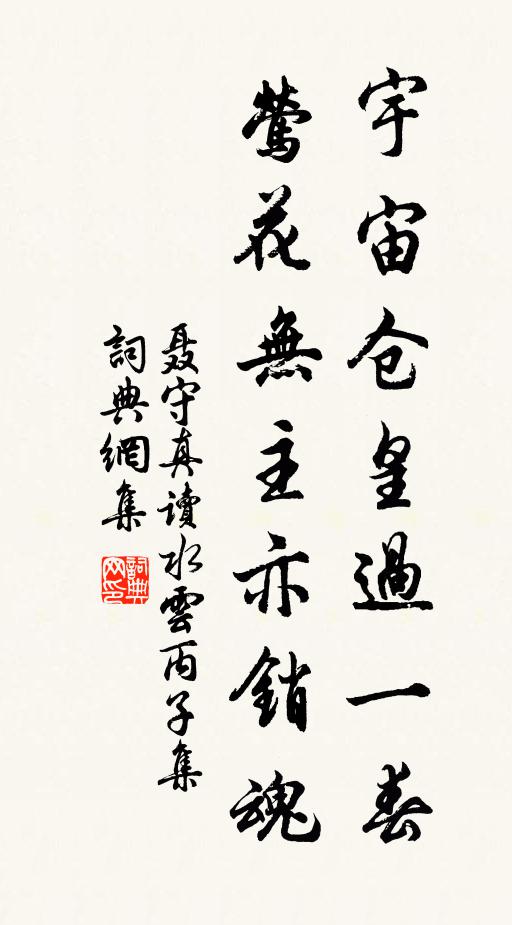 宇宙仓皇過一春
鶯花無主亦銷魂
聂守真讀水雲丙子集
詞典網集
詞典网印